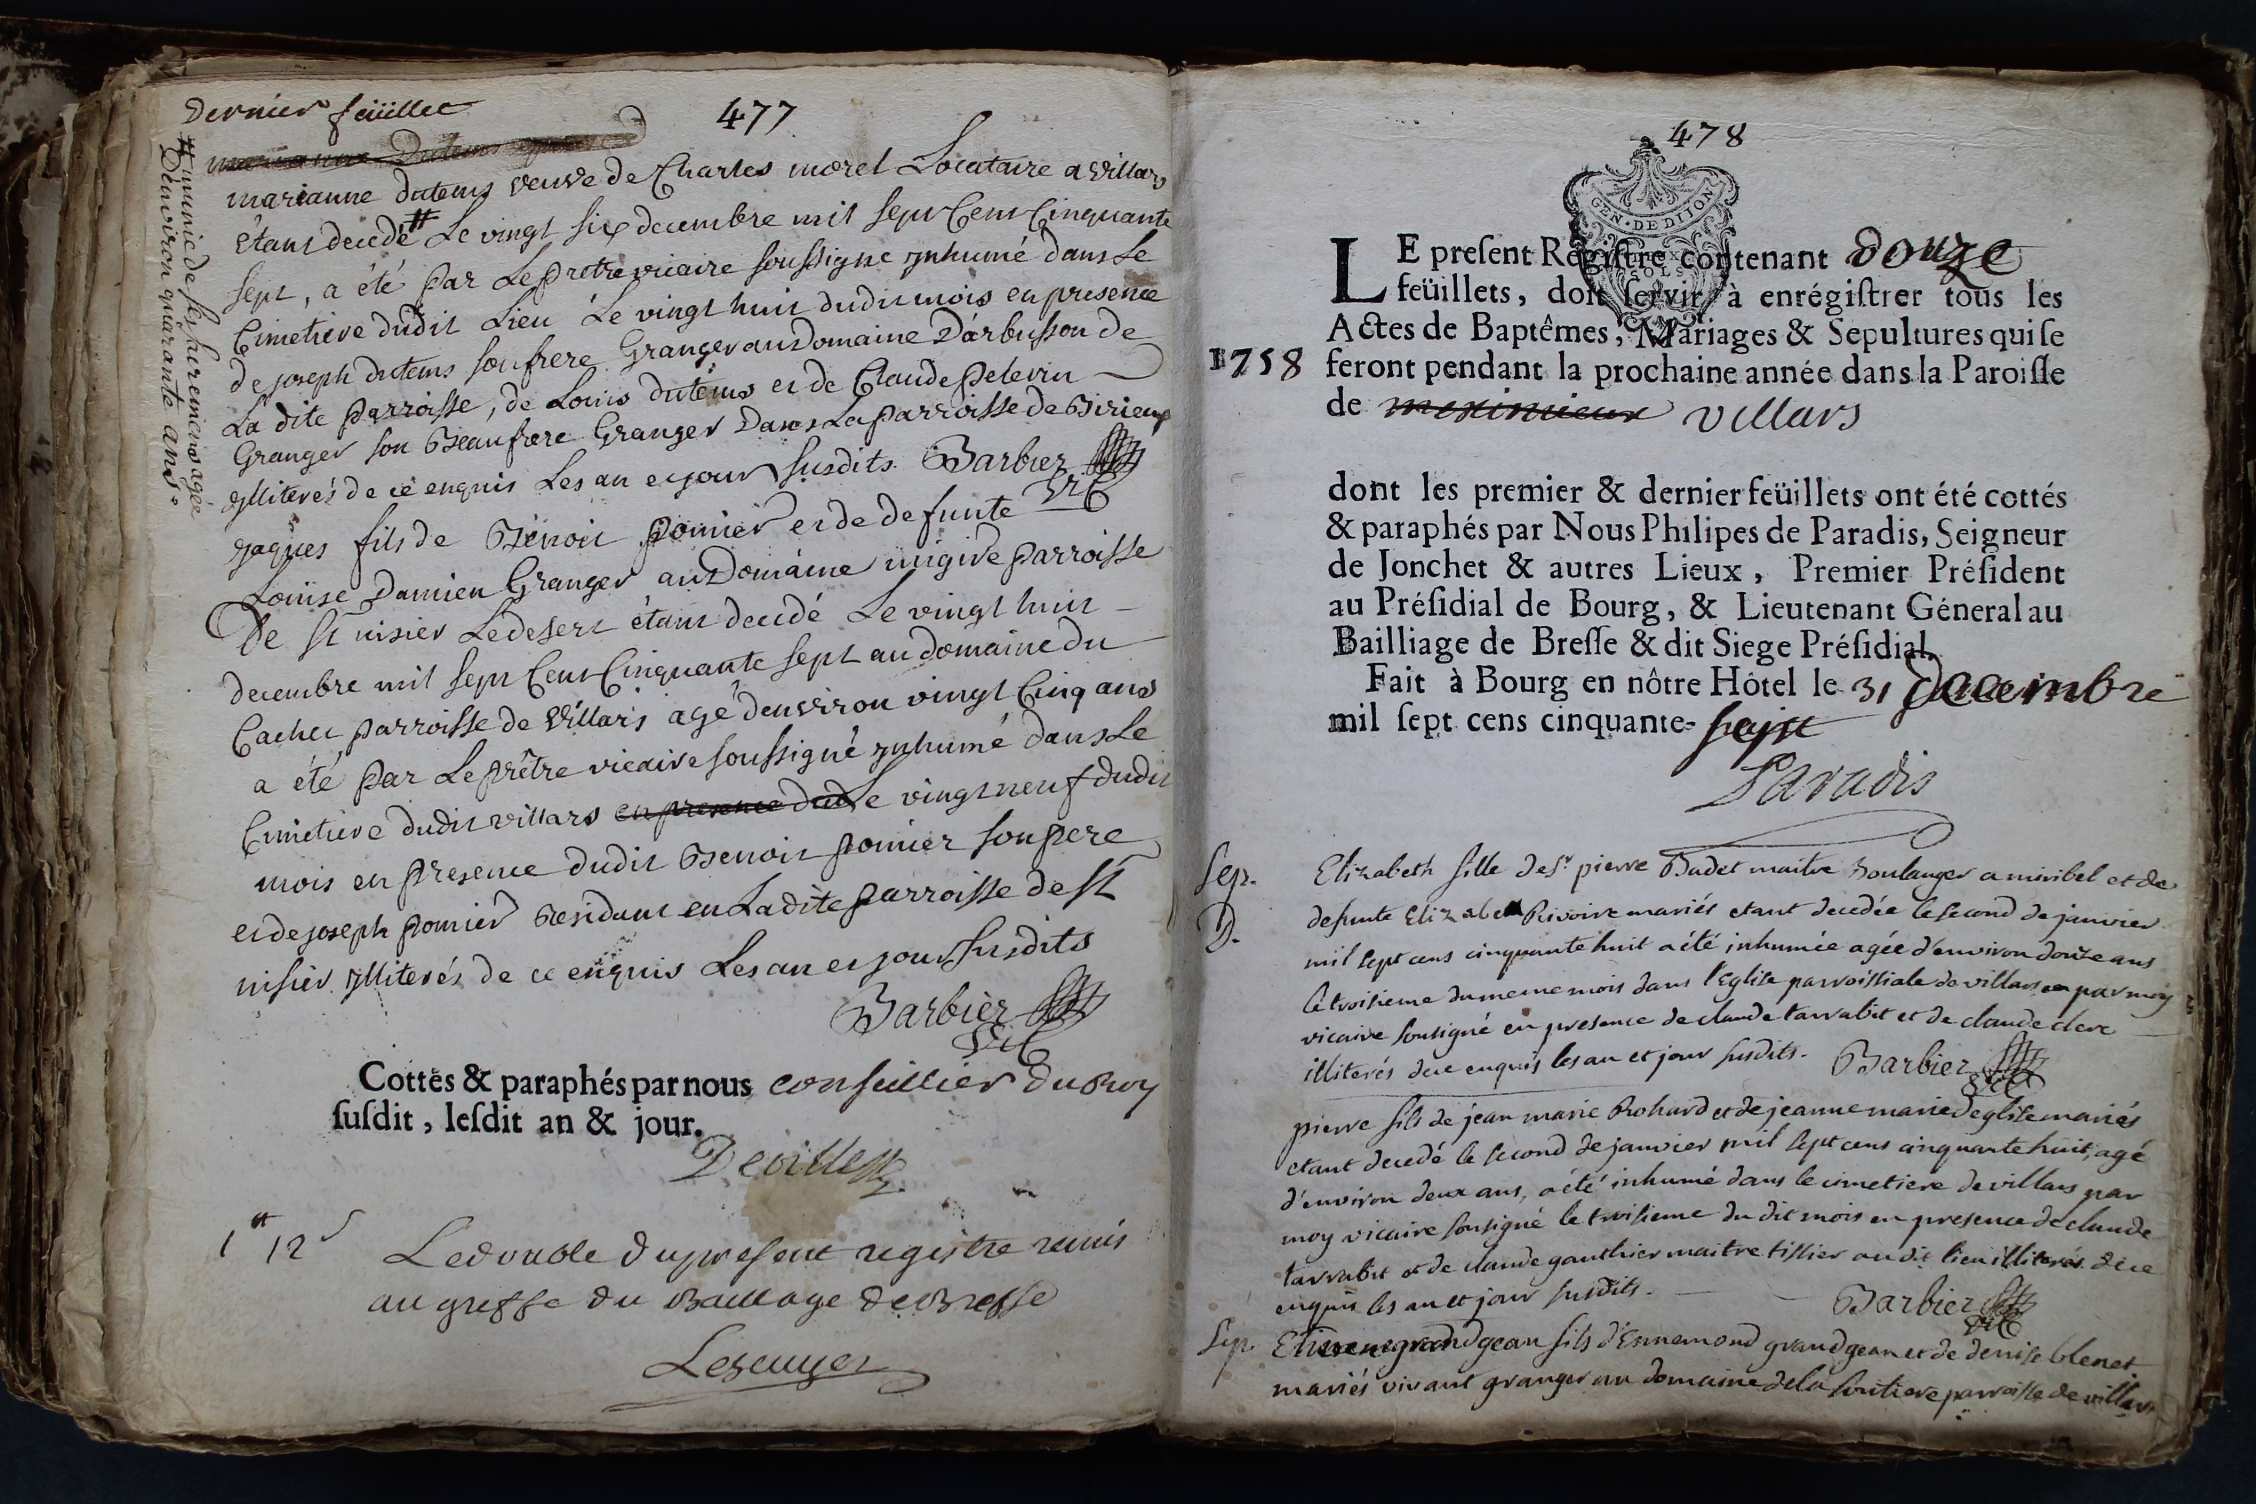 Dernier feüillet
477
marianne dutems
marianne dutems veuve de Charles morel Locataire a villars
étant decedé # Le vingt six decembre mil sept Cent Cinquante
sept, a été par Le prêtre vicaire soussigné ynhumé dans Le
Cimetiere dudit Lieu Le vingt huit dudit mois en presence
de joseph dutems son frere Granger au Domaine D'arbusson de
La dite parroisse, de Louis dutems et de Claude pelerin
Granger son Beaufrere Granger Dans La parroisse de Birieux
ylliterés de ce enquis Les an et jour susdits. Barbier
vic
# munie de ses sacremens agée
D'environ quarante ans.
jaques fils de Benoit pomier et de defunte
Louise Damien Granger au Domaine migive parroisse
De St nisier Le desert étant decedé Le vingt huit
decembre mil sept Cent Cinquante sept au domaine du
Cachet parroisse de Villars agé d'environ vingt Cinq ans
a été par Le prêtre vicaire soussigné ynhumé dans Le
Cimetiere dudit villars en presence dud Le vingt neuf dudit
mois en presence dudit Benoit pomier son pere
et de joseph pomier Residant en La dite parroisse de St
nisier ylliterés de ce enquis Les an et jour susdits
Barbier
vic
Cottés & paraphés par nous conseillier du Roy
susdit, lesdit an & jour.
1 # 12 s
Le double du present registre remis
au greffe du Bailliage de Bresse
Lescuyer
478
GEN. DE DIJON
SOLS
LE present Registre contenant douze
feüillets, doit servir à enrégistrer tous les
Actes de Baptêmes, Mariages & Sepultures qui se
1758 feront pendant la prochaine année dans la Paroisse
de meximieux villars
dont les premier & dernier feüillets ont été cottés
& paraphés par Nous Philipes de Paradis, Seigneur
de Jonchet & autres Lieux, Premier Président
au Présidial de Bourg, & Lieutenant Géneral au
Bailliage de Bresse & dit Siege Présidial.
Fait à Bourg en nôtre Hôtel le 31 Decembre
mil sept cens cinquante-sept
Paradis
Sep. Elizabeth fille de Sr pierre Badet maitre Boulanger a miribel et de
D. defunte Elizabeth Rivoire mariés etant decedée le second de janvier
mil sept cens cinquante huit a été inhumée agée d'environ douze ans
le troisieme du meme mois dans l'Eglise parroissiale de villars par moy
vicaire sousigné en presence de claude tarrabit et de claude clerc
illiterés de ce enquis les an et jour susdits. Barbier
vic
pierre fils de jean marie Rohard et de jeanne marie deglise mariés
etant decedé le second de janvier mil sept cens cinquante huit, agé
d'environ deux ans, a été inhumé dans le cimetiere de villars par
moy vicaire sousigné le troisieme du dit mois en presence de claude
tarrabit et de claude gauthier maitre tissier au dit lieu illiterés de ce
enquis les an et jour susdits. Barbier
vic
Sep. Etienne grandgean fils d'Ennemond grandgean et de denise blenet
mariés vivant granger au domaine de la sentiere parroisse de villars